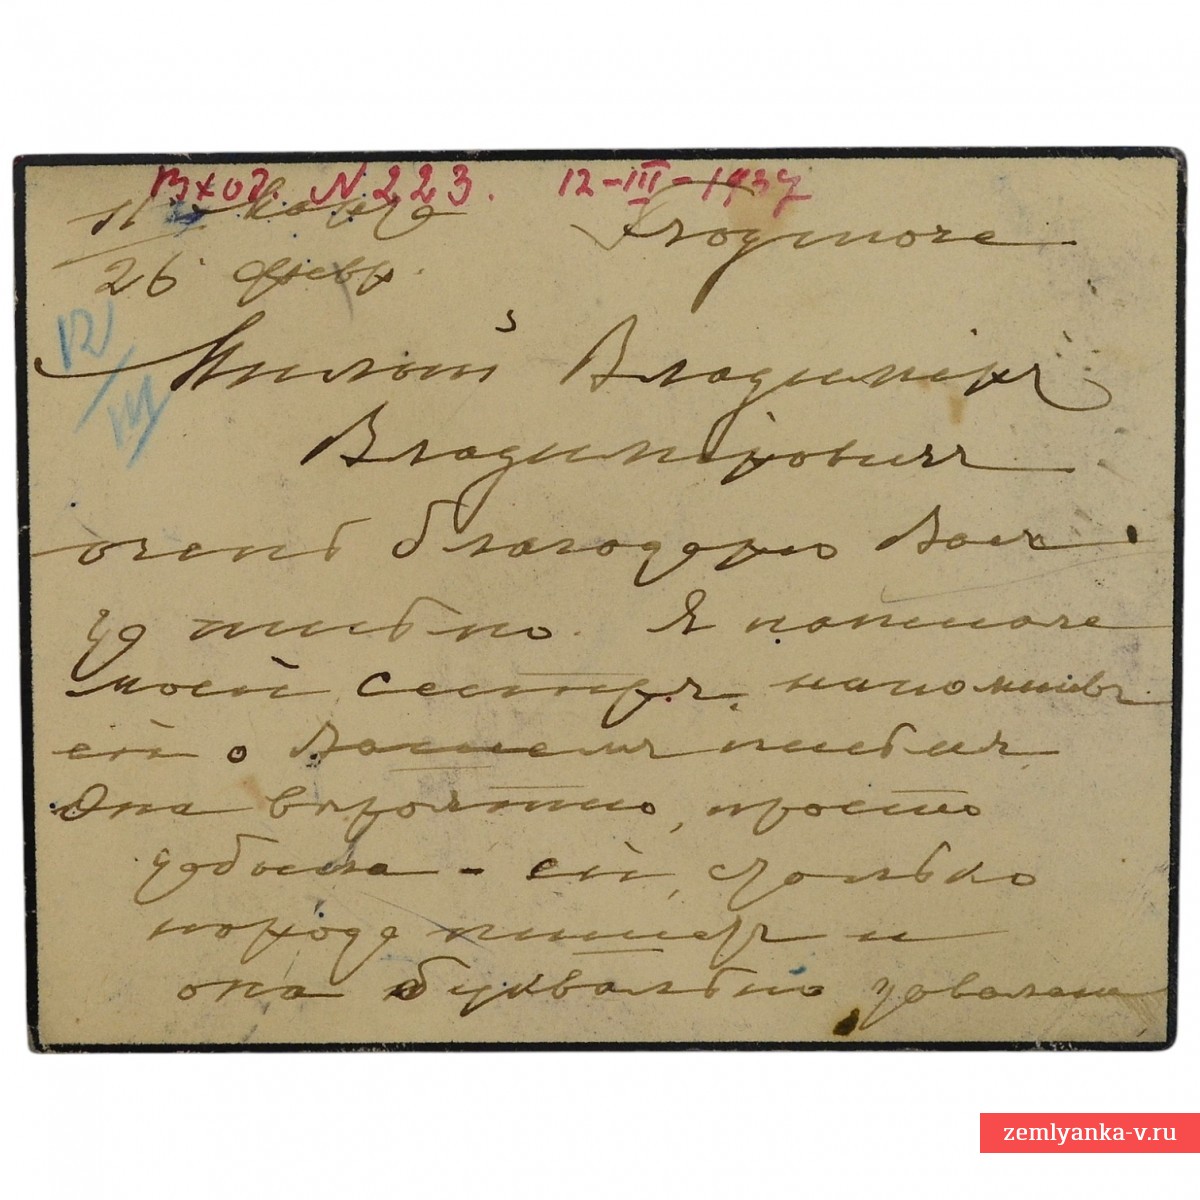 Вход. N 223. 12-III-1937
26 февр.
12/III
Милый Владиміръ
Владиміровичъ
очень благодарю Васъ
за письмо. Я напишу
моей сестрѣ, напомнивъ
ей о Вашемъ письмѣ
Она вѣроятно, просто
забыла - ей, столько
народа пишетъ и
она буквально завалена
zemlyanka-v.ru